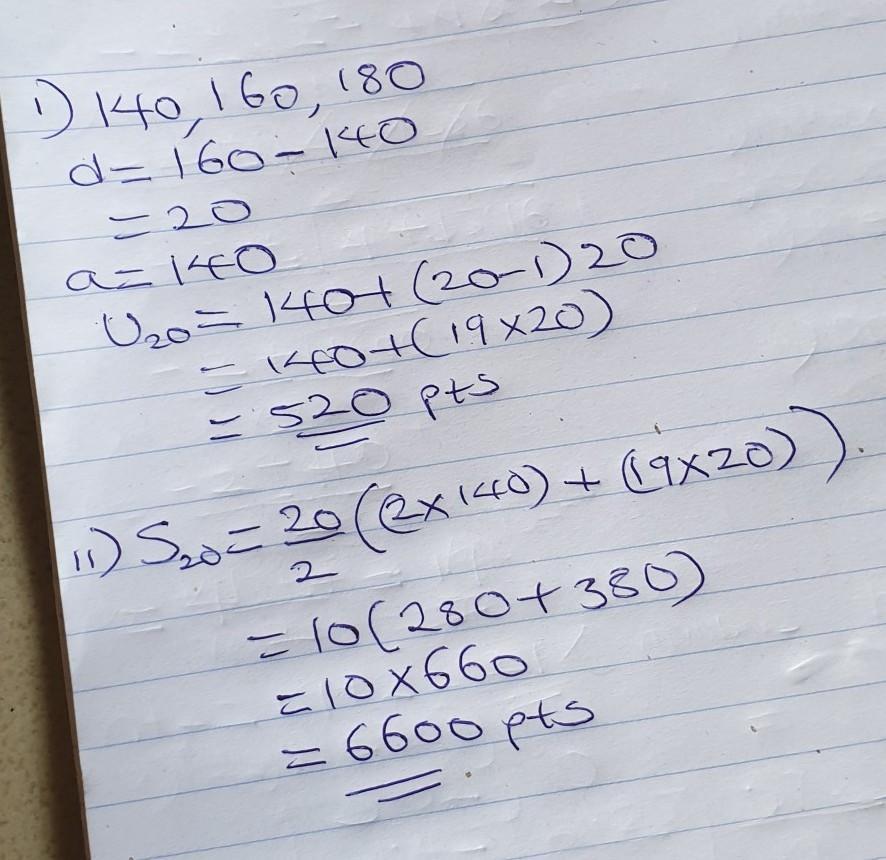 i) 140, 160, 180
d = 160 - 140
= 20
a = 140
U₂₀ = 140 + (20-1)20
= 140 + (19×20)
= 520 pts
ii) S₂₀ = 20/2 ((2×140) + (19×20)).
= 10(280 + 380)
= 10 × 660
= 6600 pts